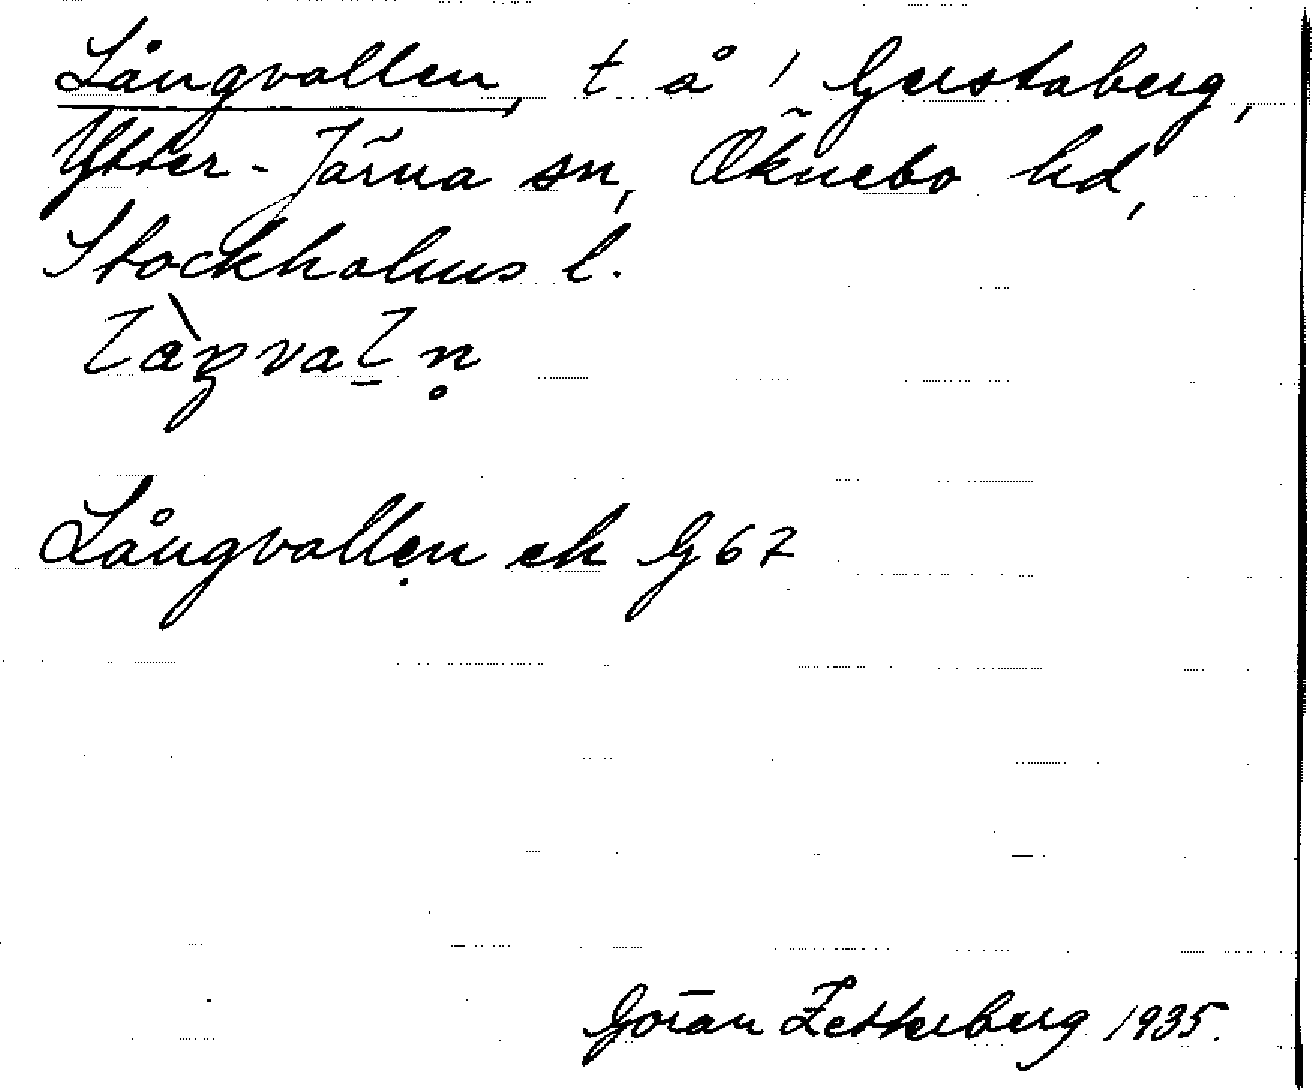 Långvallen, t å i Gerstaberg,
Ytter-Järna sn, Öknebo hd,
Stockholms l.
làŋval̠n̥
Långvallen ek G67
Göran Zetterberg 1935.